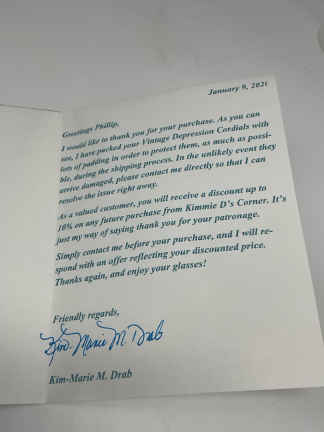 January 9, 2021
Greetings Phillip,
I would like to thank you for your purchase. As you can
see, I have packed your Vintage Depression Cordials with
lots of padding in order to protect them, as much as possi-
ble, during the shipping process. In the unlikely event they
arrive damaged, please contact me directly so that I can
resolve the issue right away.
As a valued customer, you will receive a discount up to
10% on any future purchase from Kimmie D's Corner. It's
just my way of saying thank you for your patronage.
Simply contact me before your purchase, and I will re-
spond with an offer reflecting your discounted price.
Thanks again, and enjoy your glasses!
Friendly regards,
Kim-Marie M. Drab
Kim-Marie M. Drab